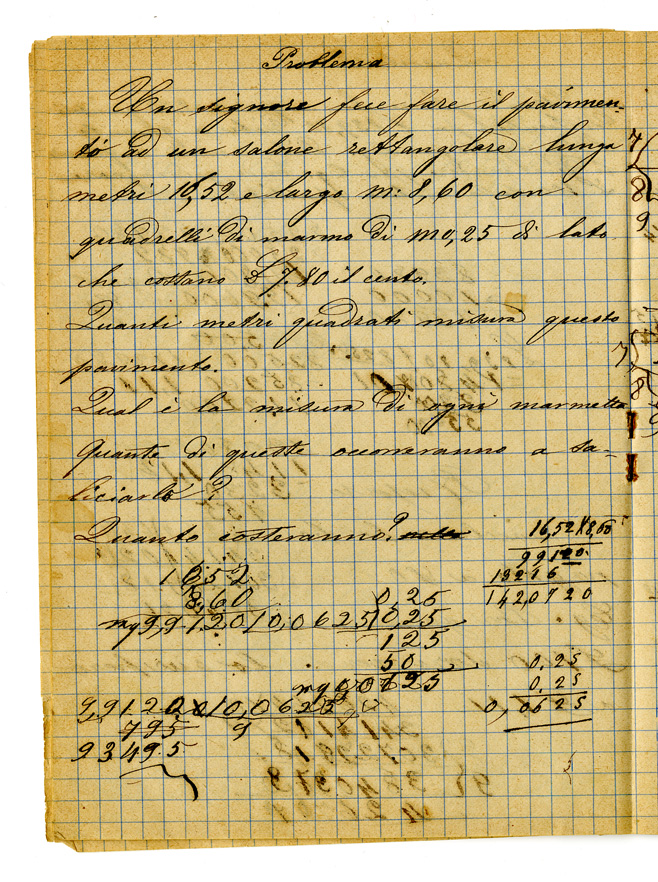 Problema
Un signore fece fare il pavimen-
to ad un salone rettangolare lungo
metri 16,52 e largo m: 8,60 con
quadrelli di marmo di m 0,25 di lato
che costano £ 7.80 il cento.
Quanti metri quadrati misura questo
pavimento.
Qual è la misura di ogni marmetta
Quante di queste occorreranno a sa-
liciarlo?
Quanto costeranno?
16,52 8,60
99120
13216
1420720
1652
860
0,25
0,25
125
50
0,25
0,25
0,0625
795
9
9349.5